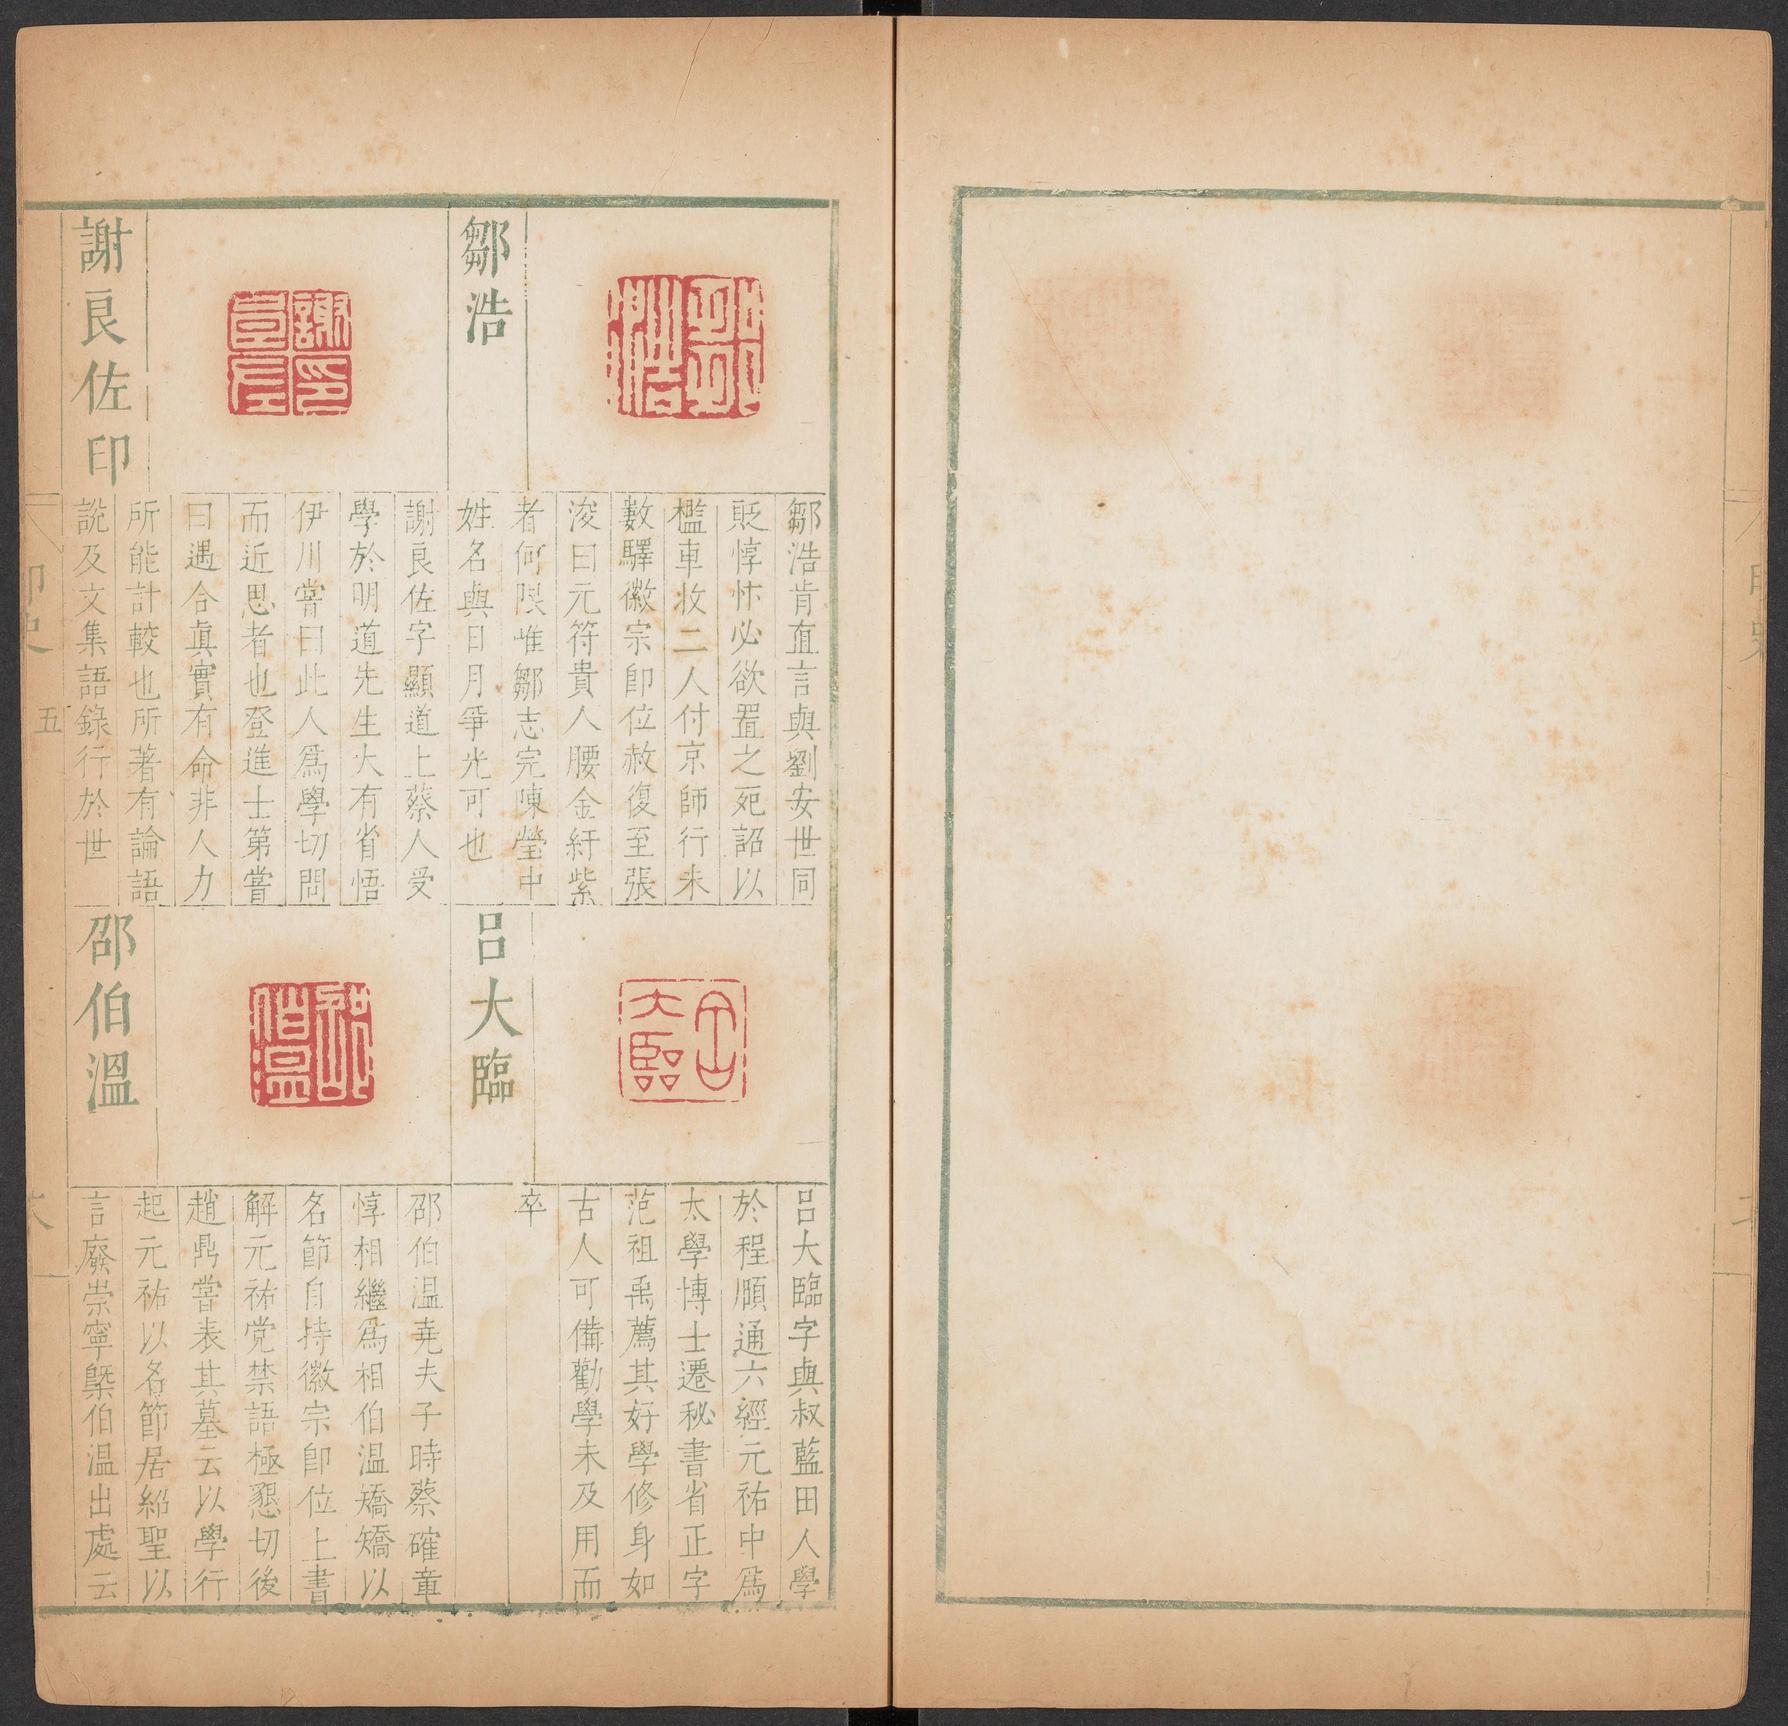 鄒浩
鄒浩肯直言與劉安世同
貶惇忭必欲置之死詔以
檻車收二人付京師行未
數驛徽宗即位赦復至張
浚曰元符貴人腰金紆紫
者何限惟鄒志完陳瑩中
姓名與日月爭光可也
謝良佐印
謝良佐字顯道上蔡人受
學於明道先生大有省悟
伊川嘗曰此人爲學切問
而近思者也登進士第嘗
曰遇合眞實有命非人力
所能計較也所著有論語
說及文集語錄行於世
呂大臨
呂大臨字與叔藍田人學
於程頤通六經元祐中爲
太學博士遷秘書省正字
范祖禹薦其好學修身如
古人可備勸學未及用而
卒
邵伯溫
邵伯温堯夫子時蔡確章
惇相繼爲相伯温矯矯以
名節自持徽宗即位上書
解元祐党禁語極懇切後
趙鼎嘗表其墓云以學行
起元祐以名節居紹聖以
言廢崇寧槩伯温出處云
印史
五